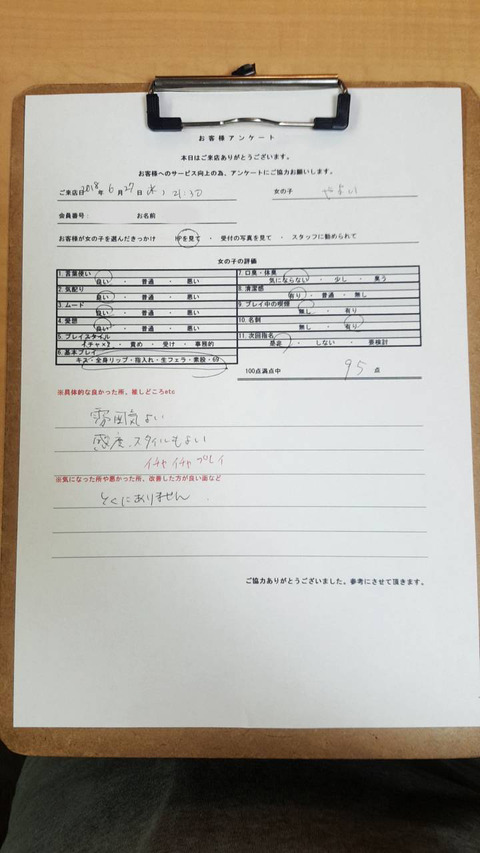 お客様アンケート
本日はご来店ありがとうございます。
お客様へのサービス向上の為、アンケートにご協力お願いします。
ご来店日 2018 年 6 月 27 日 水 21:30 女の子 やよい
会員番号: お名前
お客様が女の子を選んだきっかけ HPを見て ・ 受付の写真を見て ・ スタッフに勧められて
女の子の評価
1.言葉使い 7.口臭・体臭
良い ・ 普通 ・ 悪い 気にならない ・ 少し ・ 臭う
2.気配り 8.清潔感
良い ・ 普通 ・ 悪い 有り ・ 普通 ・ 無し
3.ムード 9.プレイ中の喫煙
良い ・ 普通 ・ 悪い 無し ・ 有り
4.愛想 10.名刺
良い ・ 普通 ・ 悪い 無し ・ 有り
5.プレイスタイル 11.次回指名
イチャ×2 ・ 責め ・ 受け ・ 事務的 是非 ・ しない ・ 要検討
6.基本プレイ
キス・全身リップ・指入れ・生フェラ・素股・69
100点満点中 95 点
※具体的な良かった所、推しどころetc
雰囲気よい
感度、スタイルもよい
イチャイチャプレイ
※気になった所や悪かった所、改善した方が良い面など
とくにありません
ご協力ありがとうございました。参考にさせて頂きます。